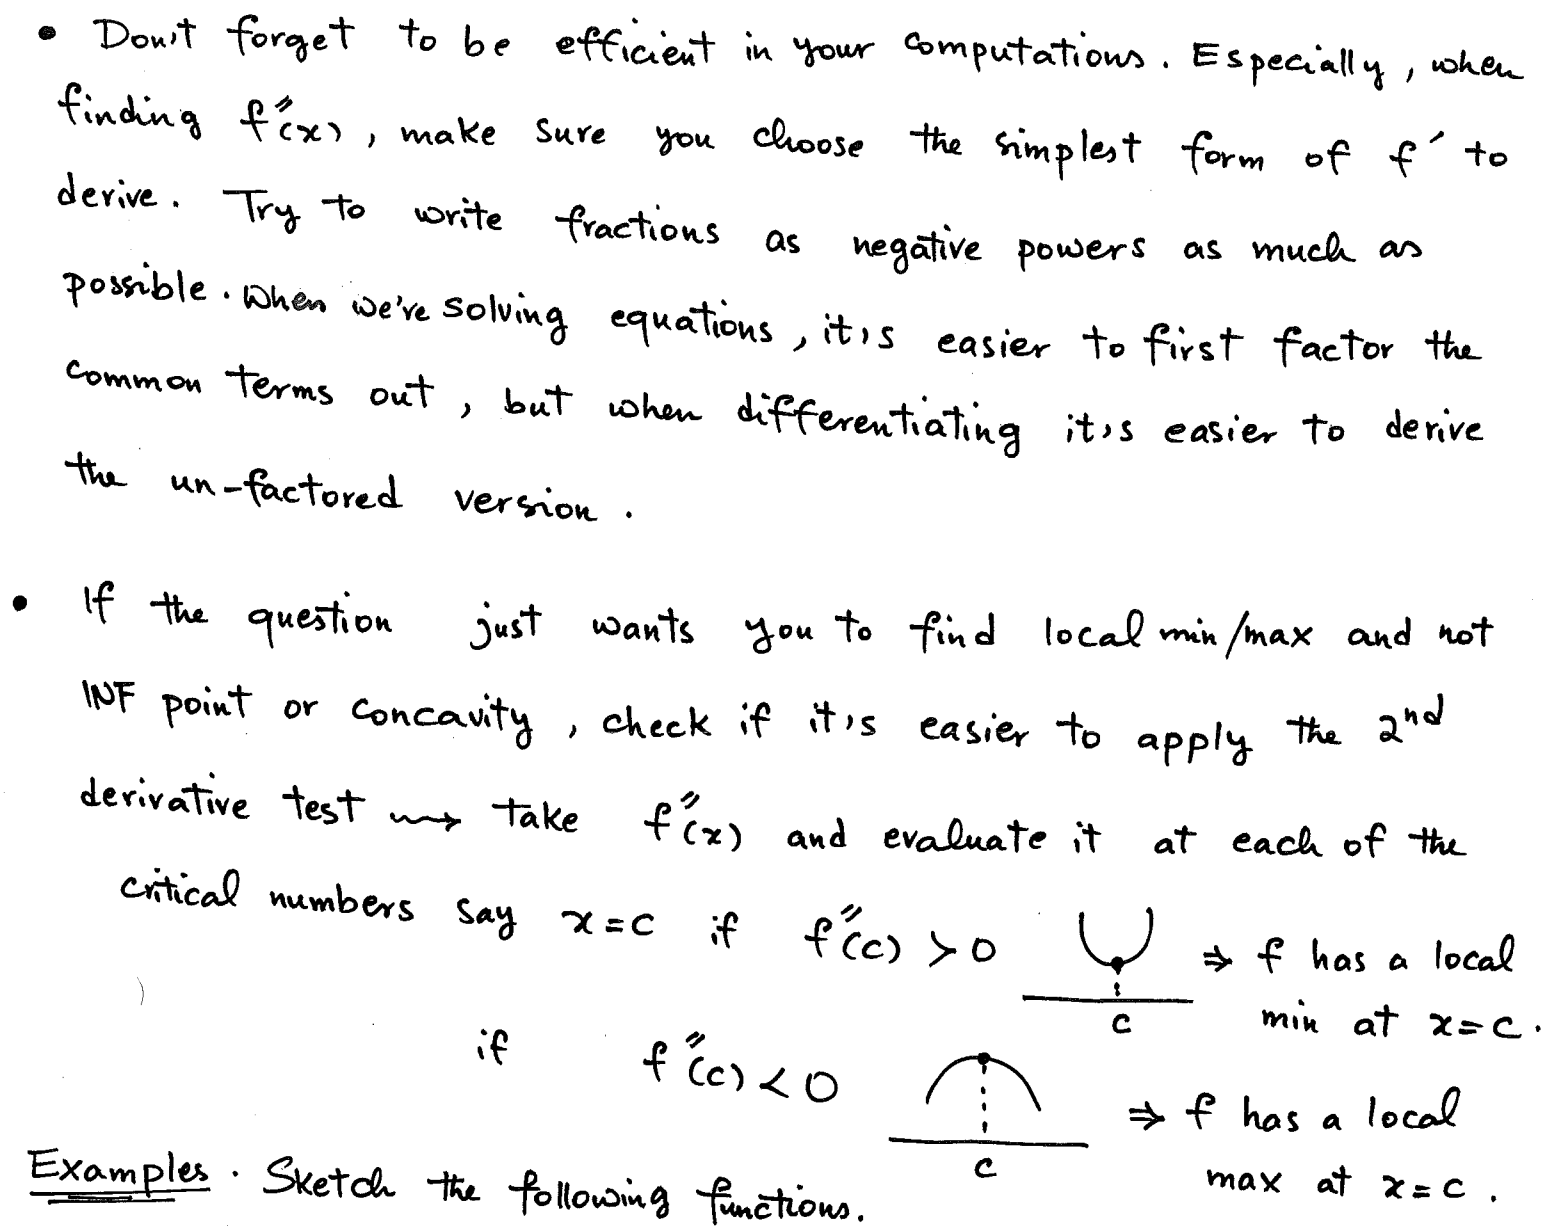 • Don't forget to be efficient in your computations. Especially, when
finding f''(x), make sure you choose the simplest form of f' to
derive. Try to write fractions as negative powers as much as
possible. When we're solving equations, it's easier to first factor the
common terms out, but when differentiating it's easier to derive
the un-factored version.
• If the question just wants you to find local min/max and not
INF point or concavity, check if it's easier to apply the 2nd
derivative test ⇝ take f''(x) and evaluate it at each of the
critical numbers say x=c if f''(c) > 0 ⇒ f has a local
c min at x=c.
if f''(c) < 0 ⇒ f has a local
c max at x=c.
Examples. Sketch the following functions.